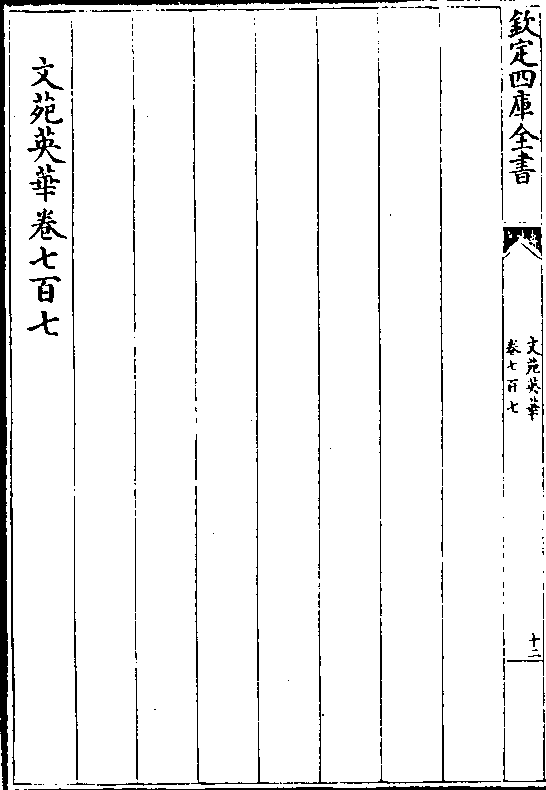 欽定四庫全書
文苑英華
卷七百七
十二
文苑英華卷七百七